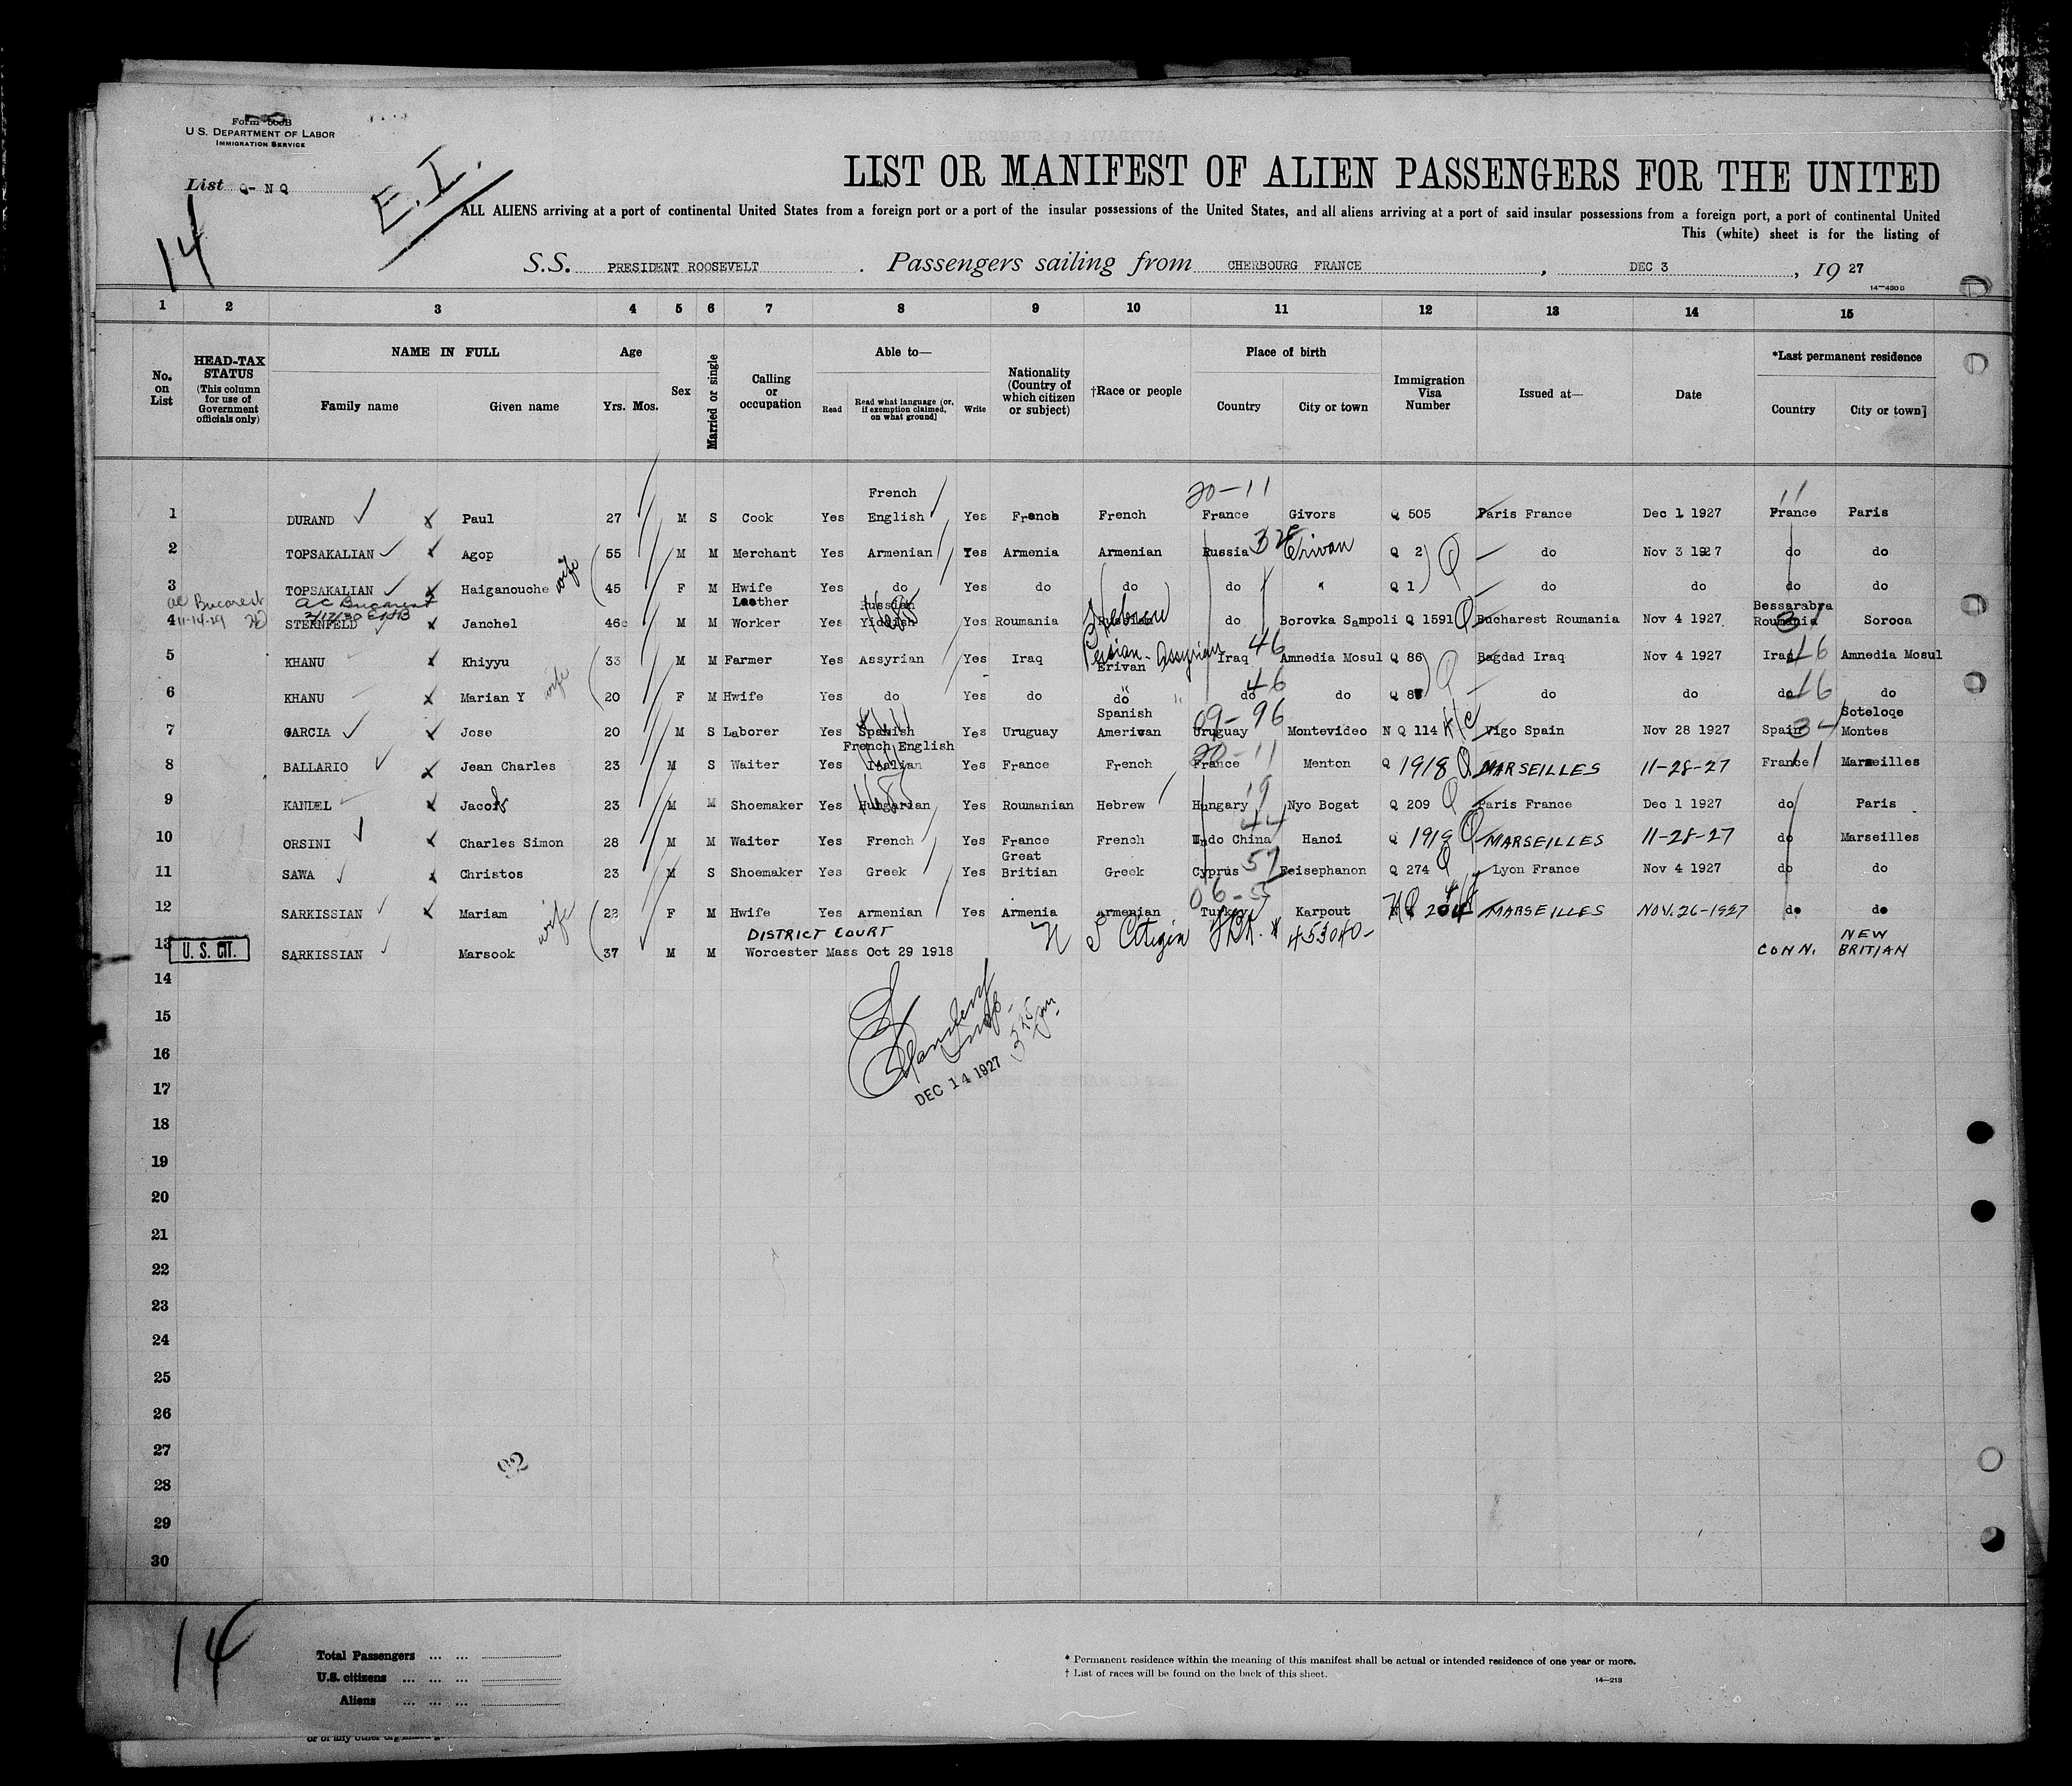 Form 500B
U. S. DEPARTMENT OF LABOR
IMMIGRATION SERVICE
List Q- N Q
E.I.
14
LIST OR MANIFEST OF ALIEN PASSENGERS FOR THE UNITED
ALL ALIENS arriving at a port of continental United States from a foreign port or a port of the insular possessions of the United States, and all aliens arriving at a port of said insular possessions from a foreign port, a port of continental United
This (white) sheet is for the listing of
S.S. PRESIDENT ROOSEVELT . Passengers sailing from CHERBOURG FRANCE , DEC 3 , 19 27
14—430 B
1 2 3 4 5 6 7 8 9 10 11 12 13 14 15
No. on List
HEAD-TAX STATUS (This column for use of Government officials only)
NAME IN FULL Family name Given name
Age Yrs. Mos.
Sex
Married or single
Calling or occupation
Able to— Read Read what language [or, if exemption claimed, on what ground] Write
Nationality (Country of which citizen or subject)
†Race or people
Place of birth Country City or town
Immigration Visa Number
Issued at—
Date
*Last permanent residence Country City or town]
French 20-11 11
1 DURAND Paul 27 M S Cook Yes English Yes French French France Givors Q 505 Paris France Dec 1 1927 France Paris
2 TOPSAKALIAN Agop 55 M M Merchant Yes Armenian Yes Armenia Armenian Russia 32 Erivan Q 2 do Nov 3 1927 do do
3 TOPSAKALIAN Haiganouche wife 45 F M Hwife Yes do Yes do do do " Q 1 do do do do
ac Bucarest 11-14-29 ac Bucarest 2/17/30 Leather Russian Hebrew Bessarabra
4 STERNFELD Janchel 46 M M Worker Yes Yiddish Yes Roumania Russian do Borovka Sampoli Q 1591 Bucharest Roumania Nov 4 1927 Roumania Soroca
5 KHANU Khiyyu 33 M M Farmer Yes Assyrian Yes Iraq Persian Erivan Assyrian Iraq 46 Amnedia Mosul Q 86 Bagdad Iraq Nov 4 1927 Iraq 16 Amnedia Mosul
6 KHANU Marian Y wife 20 F M Hwife Yes do Yes do do " do 46 do Q 87 do do do 16 do
Spanish 09-96 Soteloqe
7 GARCIA Jose 20 M S Laborer Yes Spanish Yes Uruguay Amerivan Uruguay Montevideo N Q 114 Vigo Spain Nov 28 1927 Spain 34 Montes
French English 20-11
8 BALLARIO Jean Charles 23 M S Waiter Yes Italian Yes France French France Menton Q 1918 MARSEILLES 11-28-27 France 11 Marseilles
9 KANDEL Jacob 23 M M Shoemaker Yes Hungarian Yes Roumanian Hebrew Hungary 19 Nyo Bogat Q 209 Paris France Dec 1 1927 do Paris
10 ORSINI Charles Simon 28 M M Waiter Yes French Yes France French Indo China 44 Hanoi Q 1919 MARSEILLES 11-28-27 do Marseilles
Great
11 SAWA Christos 23 M S Shoemaker Yes Greek Yes Britian Greek Cyprus 57 Feisephanon Q 274 Lyon France Nov 4 1927 do do
06-55
12 SARKISSIAN Mariam wife 22 F M Hwife Yes Armenian Yes Armenia Armenian Turkey Karpout NQ 204 MARSEILLES NOV. 26-1927 do do
DISTRICT COURT U S Citizen 453040- NEW
13 U. S. CIT. SARKISSIAN Marsook 37 M M Worcester Mass Oct 29 1918 CONN. BRITIAN
14
15
16
17
DEC 14 1927
18
19
20
21
22
23
24
25
26
27
92
28
29
30
14
Total Passengers
U.S. citizens
Aliens
* Permanent residence within the meaning of this manifest shall be actual or intended residence of one year or more.
† List of races will be found on the back of this sheet.
14—213